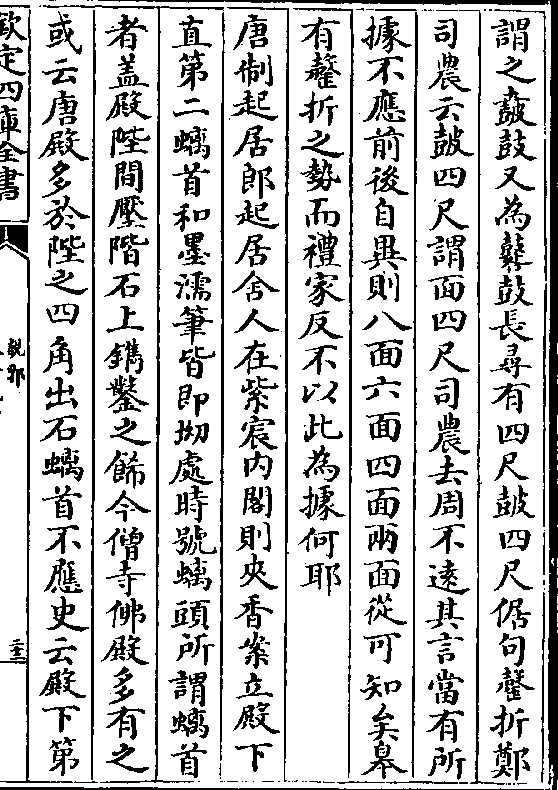 謂之鼖鼓又為鼛鼓長尋有四尺鼓四尺倨句磬折鄭
司農云鼓四尺謂面四尺司農去周不逺其言當有所
據不應前後自異則八面六面四面兩面從可知矣皋
有磬折之勢而禮家反不以此為據何耶
唐制起居郎起居舍人在紫宸内閣則夾香案立殿下
直第二螭首和墨濡筆皆即坳處時號螭頭所謂螭首
者盖殿陛間壓階石上鐫鑿之飾今僧寺佛殿多有之
或云唐殿多於陛之四角出石螭首不應史云殿下第
欽定四庫全書
說郛